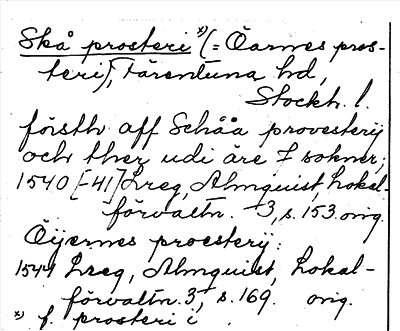 Skå prosteri x) (= Öarnes pros-
teri), Färentuna hd,
Stockh. l.
försth aff Schåa provesterij
och ther udi äre 7 sokner;
1540 [-41] Lreg, Almquist, Lokal-
förvaltn. 3, s. 153. orig.
Öÿernes proesterÿ:
1544 Lreg, Almquist, Lokal-
förvaltn. 3, s. 169. orig.
x) f. prosteri i